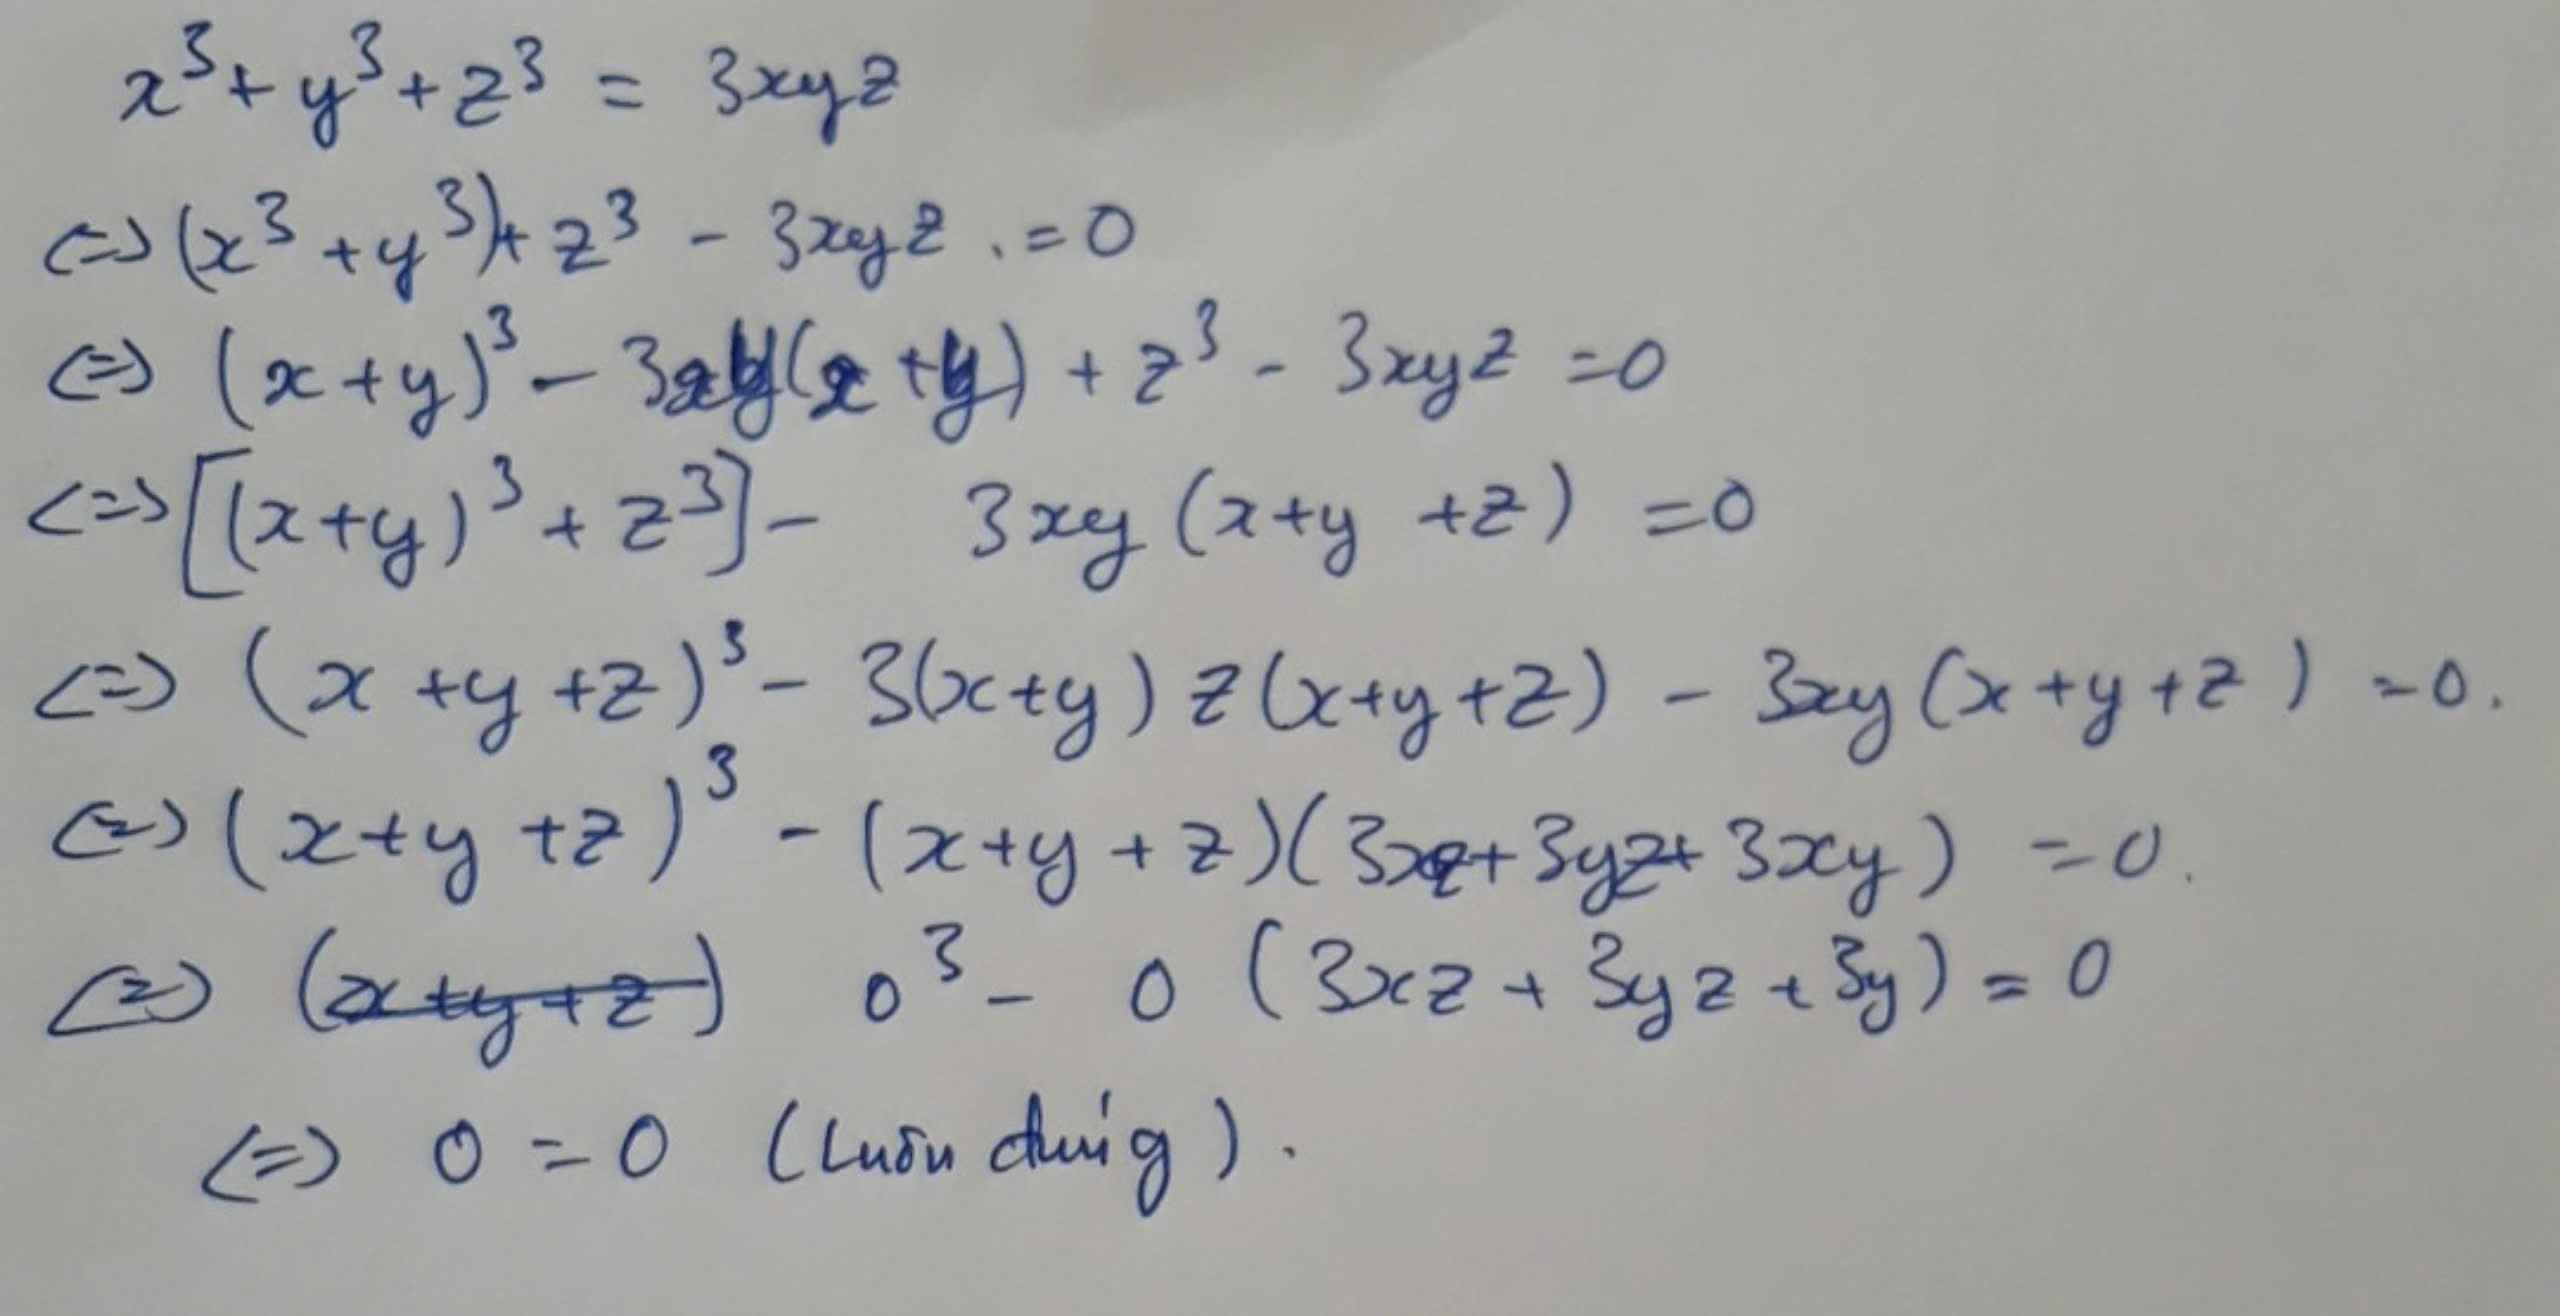 x³ + y³ + z³ = 3xyz
<=> (x³ + y³) + z³ - 3xyz . = 0
<=> (x + y)³ - 3xy(x + y) + z³ - 3xyz = 0
<=> [(x + y)³ + z³] - 3xy (x + y + z) = 0
<=> (x + y + z)³ - 3(x + y) z (x + y + z) - 3xy (x + y + z) = 0.
<=> (x + y + z)³ - (x + y + z)(3xz + 3yz + 3xy) = 0.
<=> (x + y + z) 0³ - 0 (3xz + 3yz + 3y) = 0
<=> 0 = 0 (Luôn đúng).